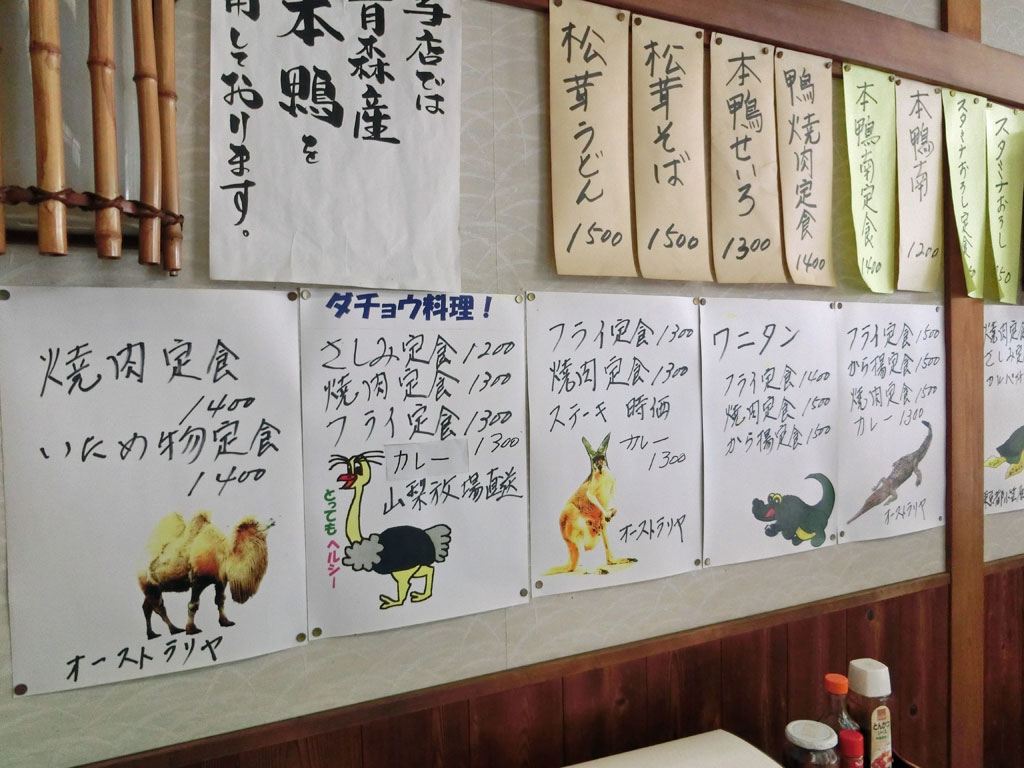 当店では
青森産
本鴨を
用しております。
松茸うどん
1500
松茸そば
1500
本鴨せいろ
1300
鴨焼肉定食
1400
本鴨南定食
1400
本鴨南
1200
スタミナおろし定食
スタミナおろし
焼肉定食
1400
いため物定食
1400
オーストラリヤ
ダチョウ料理!
さしみ定食 1200
焼肉定食 1300
フライ定食 1300
カレー 1300
山梨放場直送
とっても
ヘルシー
フライ定食 1300
焼肉定食 1300
ステーキ 時価
カレー
1300
オーストラリヤ
ワニタン
フライ定食 1400
焼肉定食 1500
から揚定食 1500
フライ定食 1500
から揚定食 1500
焼肉定食 1500
カレー 1300
オーストラリヤ
さしみ定
とんかつ
ソース